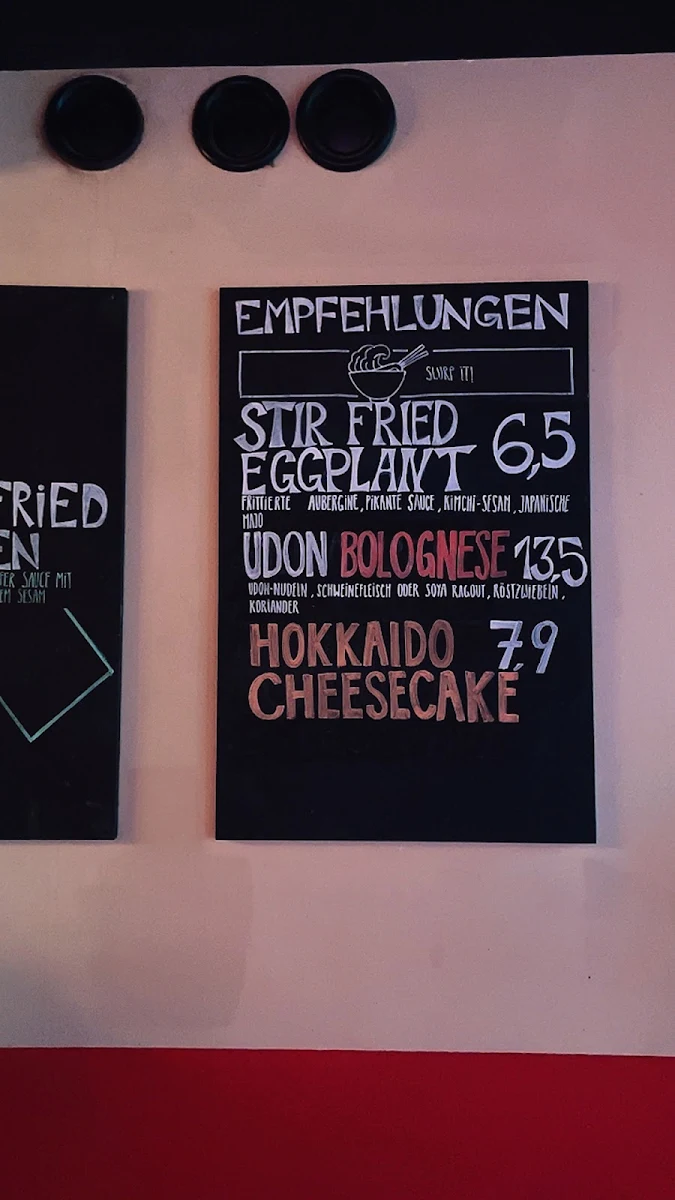 FRIED
EN
FER SAUCE MIT
EM SESAM
EMPFEHLUNGEN
SLURP IT!
STIR FRIED
EGGPLANT 6,5
FRITTIERTE AUBERGINE, PIKANTE SAUCE, KIMCHI-SESAM, JAPANISCHE
MAJO
UDON BOLOGNESE 13,5
UDON-NUDELN, SCHWEINEFLEISCH ODER SOYA RAGOUT, RÖSTZWIEBELN,
KORIANDER
HOKKAIDO 7,9
CHEESECAKE